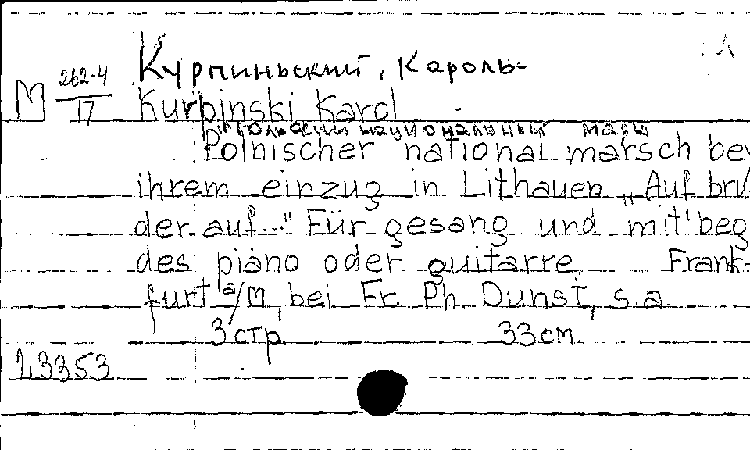 Курпиньский, Кароль-
М 262-4/17
Kurpinski Karol
Польский национальный марш
Polnischer national marsch bey
ihrem einzug in Lithauen „Auf brü
der auf..." Für gesang und mit beg
des piano oder guitarre Frank-
furt a/M, bei Fr. Ph. Dunst, s.a
3 стр. 33 см.
23353